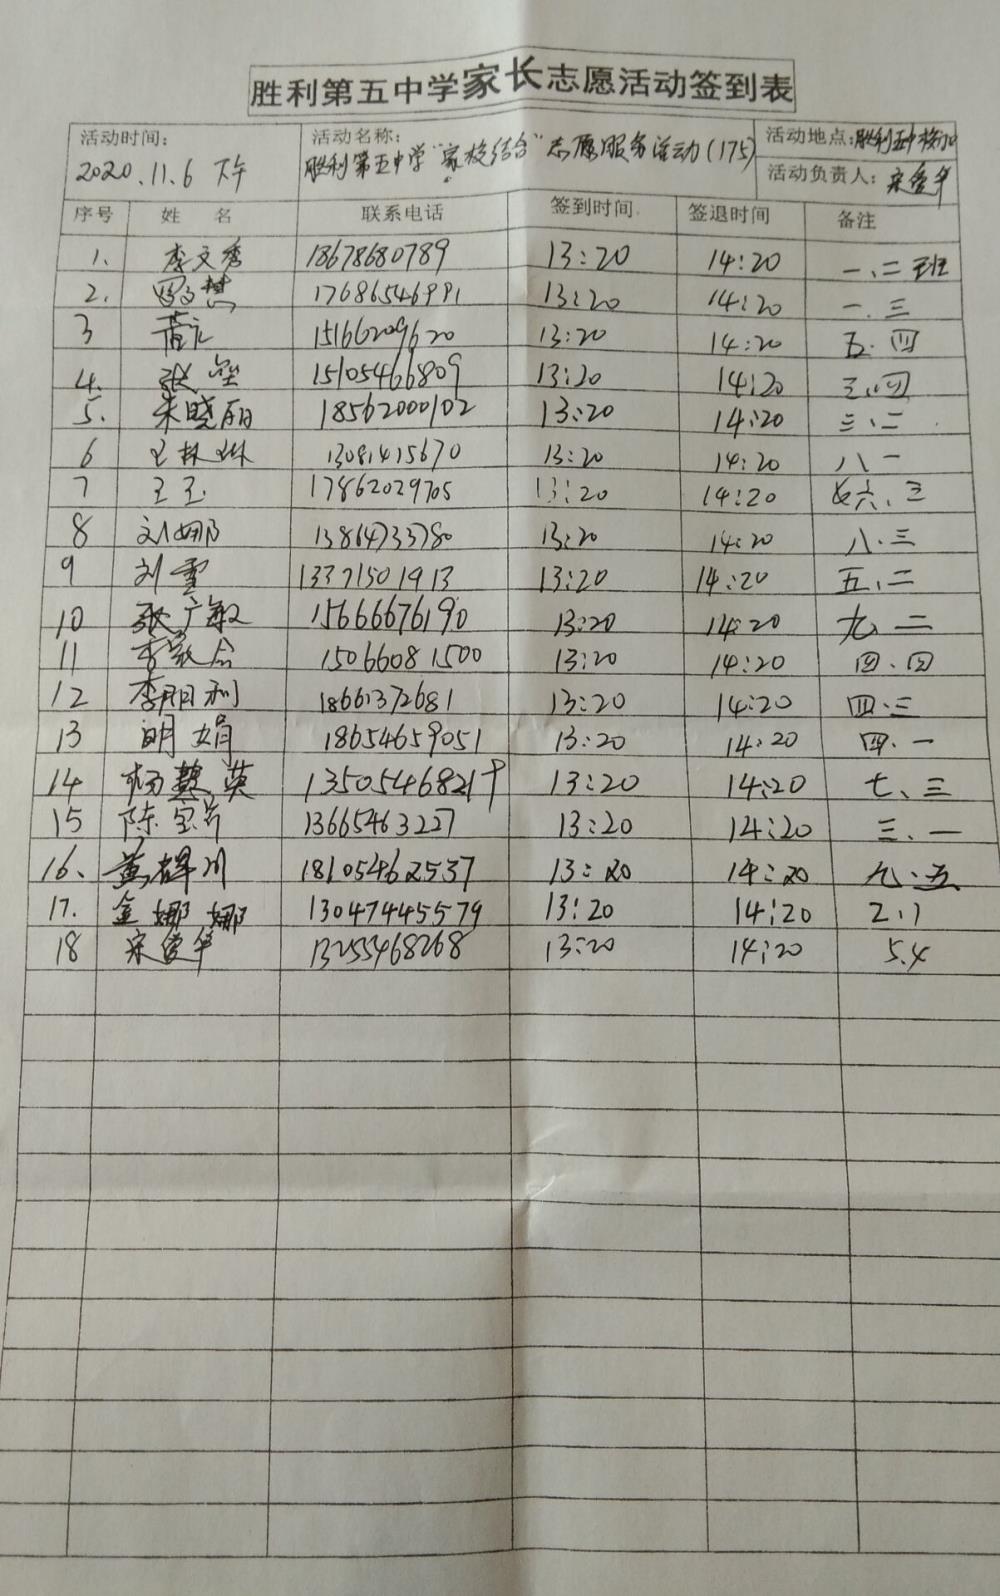 胜利第五中学家长志愿活动签到表
活动时间: 2020.11.6 下午
活动名称: 胜利第五中学"家校结合"志愿服务活动(175)
活动地点:胜利五中校门口
活动负责人:宋爱华
序号 姓名 联系电话 签到时间 签退时间 备注
1. 李文秀 18678680789 13:20 14:20 一、二班
2. 17686546991 13:20 14:20 一.三
3 15166209620 13:20 14:20 五.四
4. 张莹 15105466809 13:20 14:20 三.四
5. 朱晓丽 18562000102 13:20 14:20 三.二
6 王林琳 13081415670 13:20 14:20 八一
7 王玉 17862029705 13:20 14:20 六.三
8 刘娜 13864733780 13:20 14:20 八.三
9 刘雪 13371501913 13:20 14:20 五.二
10 张广敏 15666676190 13:20 14:20 九.二
11 15066081500 13:20 14:20 四.四
12 李朋利 18661372681 13:20 14:20 四.三
13 明娟 18654659051 13:20 14:20 四.一
14 杨慧英 1350546821 13:20 14:20 七、三
15 陈宝芹 13665463227 13:20 14:20 三.一
16、 黄辉川 18105462537 13:20 14:20 九.五
17. 金娜娜 13047445579 13:20 14:20 2.1
18 宋爱华 13255468268 13:20 14:20 5.4